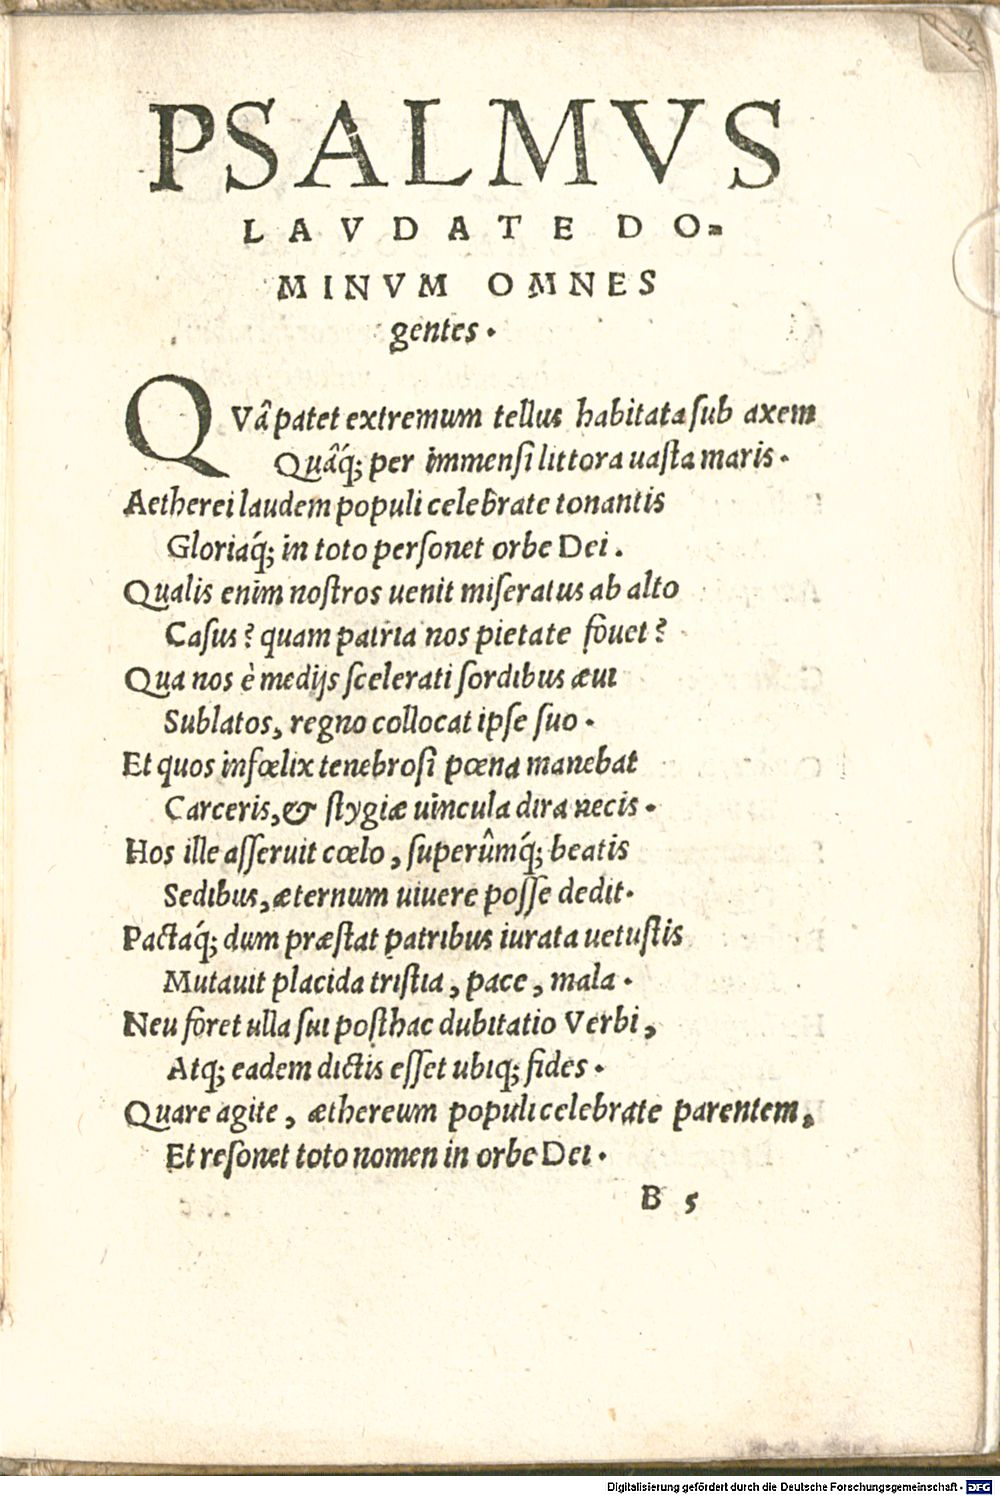 PSALMVS
LAVDATE DO=
MINVM OMNES
gentes.
QVâ patet extremum tellus habitata sub axem
Quâq́; per immensi littora uasta maris.
Aetherei laudem populi celebrate tonantis
Gloriaq́; in toto personet orbe Dei.
Qualis enim nostros uenit miseratus ab alto
Casus? quam patria nos pietate fouet?
Qua nos è medijs scelerati sordibus æui
Sublatos, regno collocat ipse suo.
Et quos infœlix tenebrosi pœna manebat
Carceris, & stygiæ uincula dira necis.
Hos ille asseruit cœlo, superûmq́; beatis
Sedibus, æternum uiuere posse dedit.
Pactaq́; dum præstat patribus iurata uetustis
Mutauit placida tristia, pace, mala.
Neu foret ulla sui posthac dubitatio Verbi,
Atq; eadem dictis esset ubiq; fides.
Quare agite, æthereum populi celebrate parentem,
Et resonet toto nomen in orbe Dei.
B 5
Digitalisierung gefördert durch die Deutsche Forschungsgemeinschaft - DFG